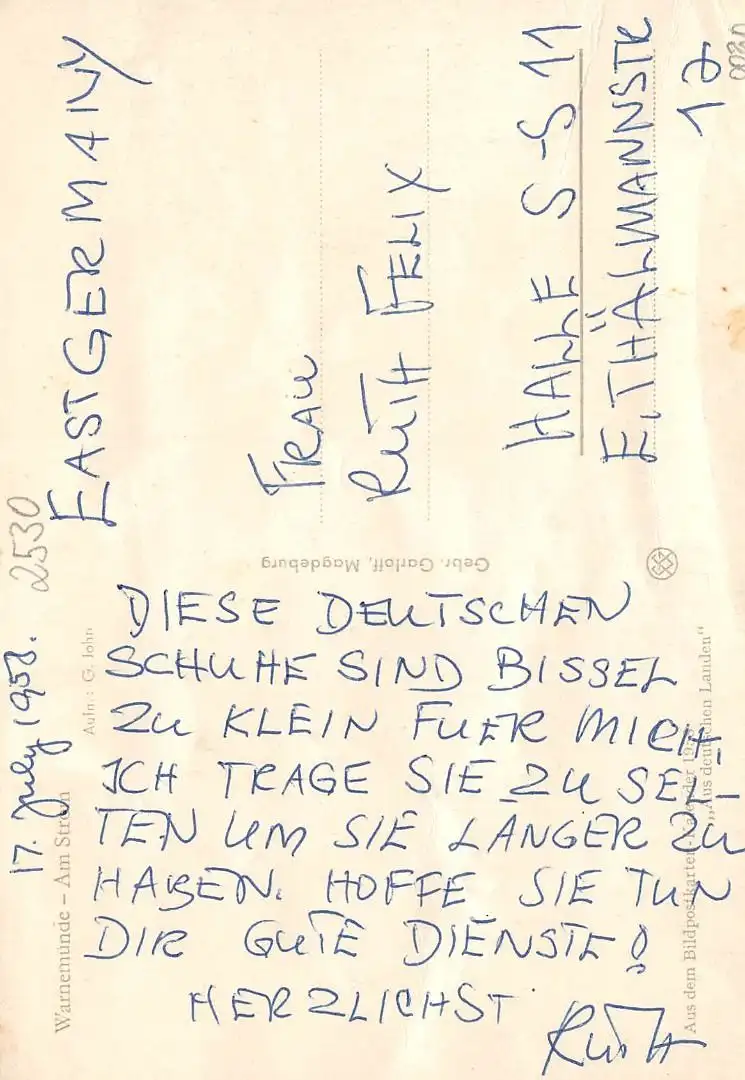 17. July 1958.
DIESE DEUTSCHEN
SCHUHE SIND BISSEL
ZU KLEIN FUER MICH
ICH TRAGE SIE ZU SEL-
TEN UM SIE LÄNGER ZU
HABEN. HOFFE SIE TUN
DIR GUTE DIENSTE!
HERZLICHST
Ruth
EASTGERMANY
FRAU
RUTH FELIX
HALLE S-S 11
E.THÄLMANNSTR
2530
0030
Warnemünde – Am Strom
Aufn.: G. John
Gebr. Garloff, Magdeburg
Aus dem Bildpostkarten-Kalender
„Aus deutschen Landen"